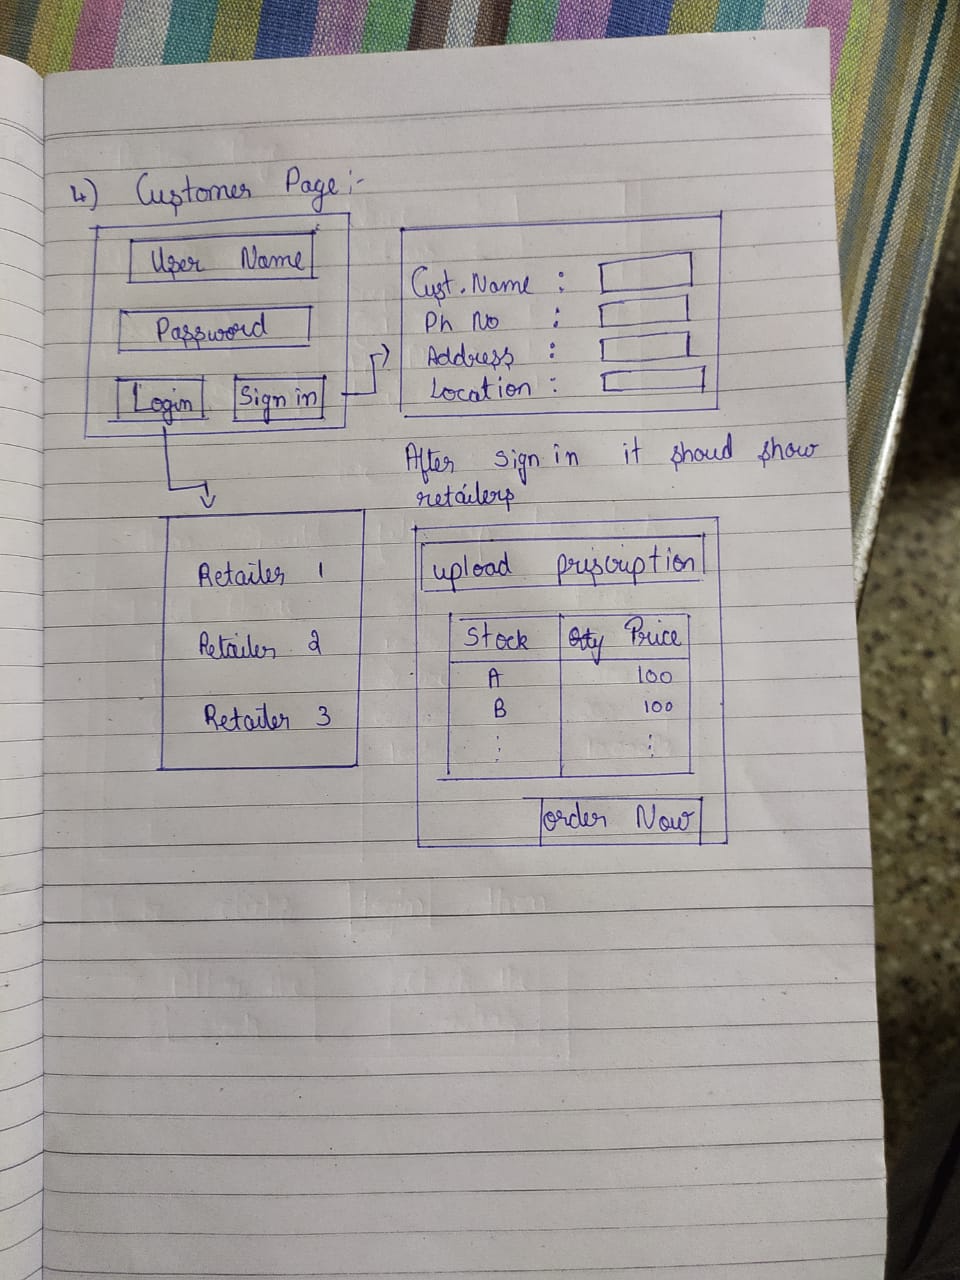 4) Customer Page :-
User Name
Password
Login Sign in
Cust. Name :
Ph No :
Address :
Location :
After sign in it shoud show
retailers
Retailer 1
Retailer 2
Retailer 3
upload priscription
Stock Qty Price
A 100
B 100
order Now